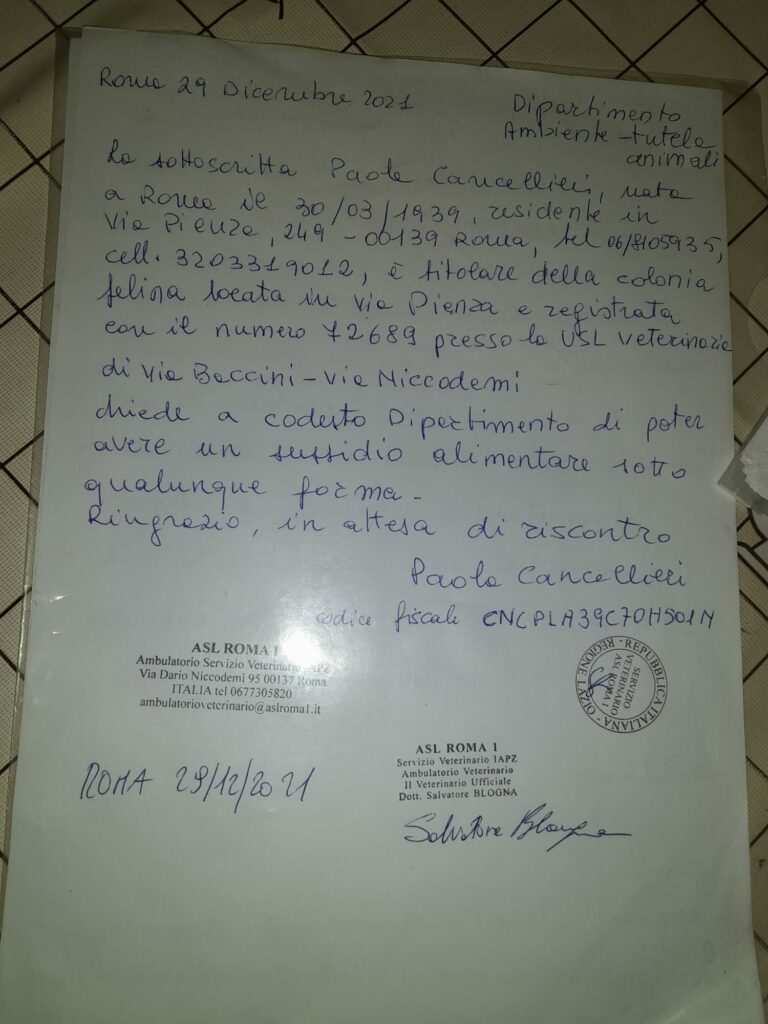 Roma 29 Dicembre 2021
Dipartimento
Ambiente-tutela
animali
La sottoscritta Paola Cancellieri, nata
a Roma il 30/03/1939, residente in
Via Pienza, 249 - 00139 Roma, tel 06/8105935,
cell. 3203319012, è titolare della colonia
felina locata in via Pienza e registrata
con il numero 72689 presso la USL Veterinaria
di Via Boccini - Via Niccodemi
chiede a codesto Dipartimento di poter
avere un sussidio alimentare sotto
qualunque forma -
Ringrazio, in attesa di riscontro
Paola Cancellieri
codice fiscale CNCPLA39C70H501M
ASL ROMA 1
Ambulatorio Servizio Veterinario IAPZ
Via Dario Niccodemi 95 00137 Roma
ITALIA tel 0677305820
ambulatorioveterinario@aslroma1.it
REPUBBLICA ITALIANA - REGIONE LAZIO -
SERVIZIO
VETERINARIO
ASL ROMA 1
ROMA 29/12/2021
ASL ROMA 1
Servizio Veterinario IAPZ
Ambulatorio Veterinario
Il Veterinario Ufficiale
Dott. Salvatore BLOGNA
Salvatore Blogna